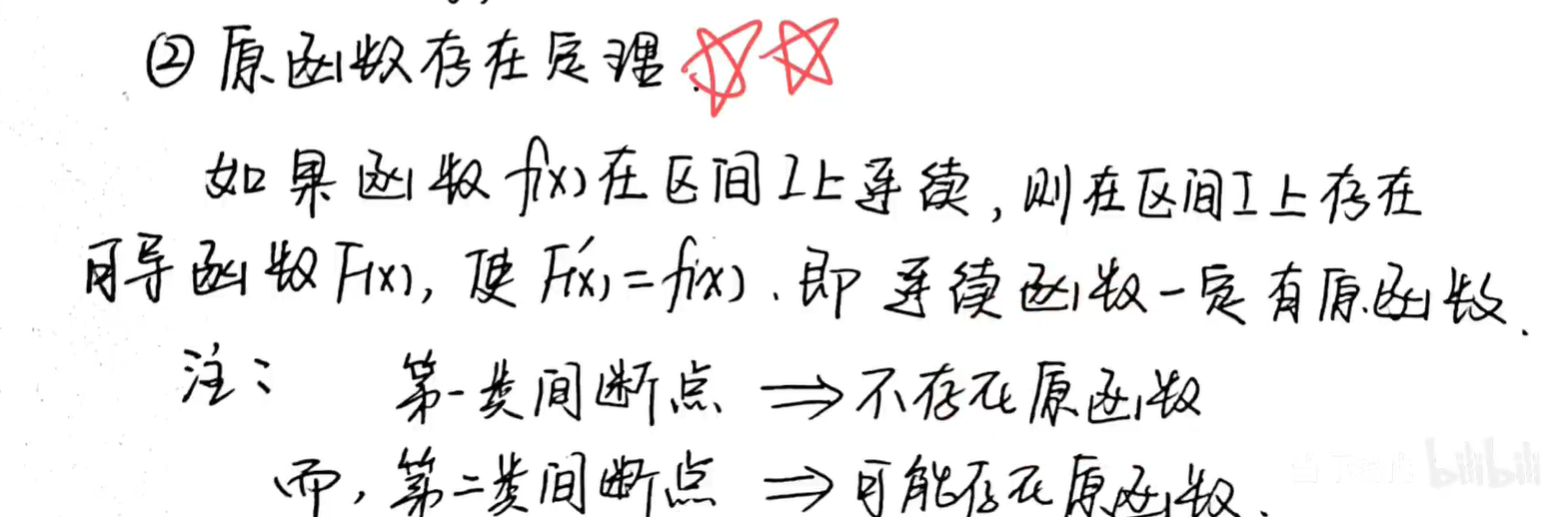 ② 原函数存在定理.
如果函数f(x)在区间I上连续,则在区间I上存在
可导函数F(x),使F'(x)=f(x).即连续函数一定有原函数.
注: 第一类间断点 ⟹ 不存在原函数
而,第二类间断点 ⟹ 可能存在原函数.
bilibili